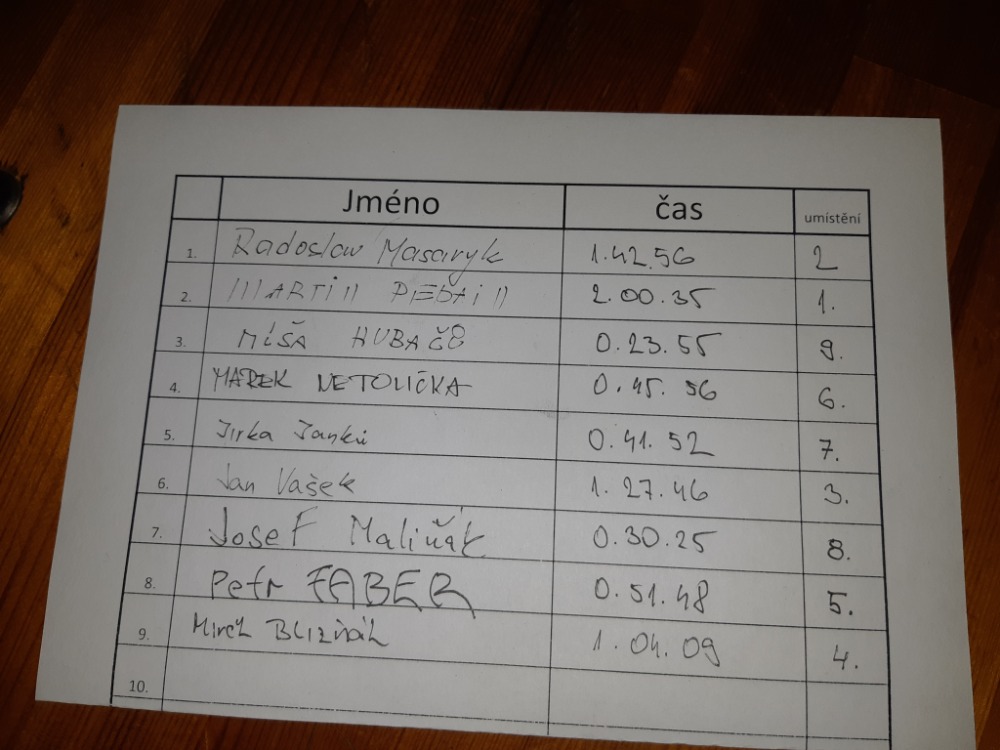 Jméno čas umístění
1. Radoslaw Masaryk 1.42.56 2
2. MARTIN 2.00.35 1.
3. MÍŠA HUBAČ 0.23.55 9.
4. MAREK NETOLIČKA 0.45.56 6.
5. Jirka Janků 0.41.52 7.
6. Jan Vašek 1.27.46 3.
7. Josef Maliňák 0.30.25 8.
8. Petr FABER 0.51.48 5.
9. Mirek BLIZŇÁK 1.04.09 4.
10.